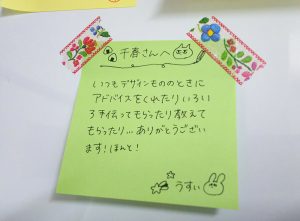 千春さんへ
いつもデザインもののときに
アドバイスをくれたりいろい
ろ手伝ってもらったり教えて
もらったり…ありがとうござい
ます!ほんと!
うすい